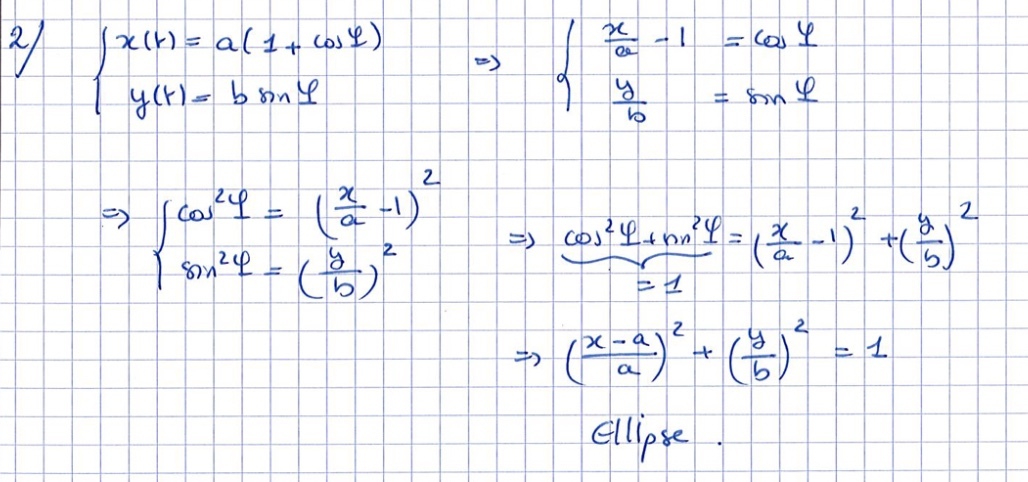 2/ { x(t) = a(1 + cos φ) ⇒ { x/a - 1 = cos φ
y(t) = b sin φ y/b = sin φ
⇒ { cos²φ = (x/a - 1)²
sin²φ = (y/b)²
⇒ cos²φ + sin²φ = (x/a - 1)² + (y/b)²
= 1
⇒ ((x - a)/a)² + (y/b)² = 1
Ellipse .